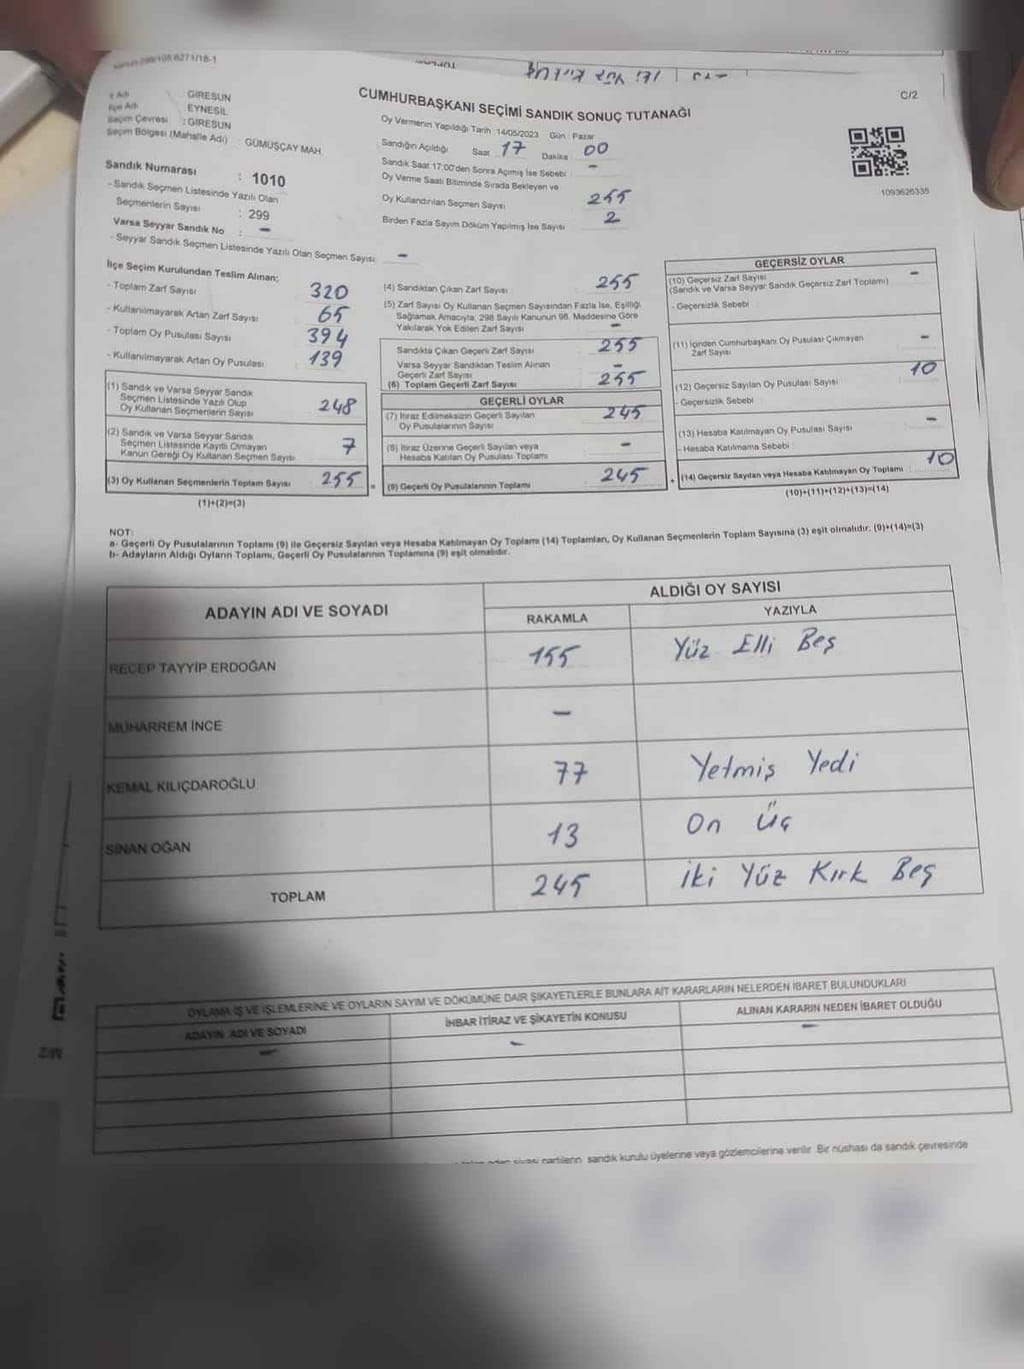 C/2
İl Adı : GİRESUN
İlçe Adı EYNESİL
Seçim Çevresi : GİRESUN
Seçim Bölgesi (Mahalle Adı) : GÜMÜŞÇAY MAH.
Sandık Numarası : 1010
- Sandık Seçmen Listesinde Yazılı Olan
Seçmenlerin Sayısı : 299
Varsa Seyyar Sandık No : -
- Seyyar Sandık Seçmen Listesinde Yazılı Olan Seçmen Sayısı: -
CUMHURBAŞKANI SEÇİMİ SANDIK SONUÇ TUTANAĞI
Oy Vermenin Yapıldığı Tarih :14/05/2023 Gün : Pazar
Sandığın Açıldığı Saat 17 Dakika 00
Sandık Saat 17:00'den Sonra Açılmış İse Sebebi : -
Oy Verme Saati Bitiminde Sırada Bekleyen ve
Oy Kullandırılan Seçmen Sayısı 255
Birden Fazla Sayım Döküm Yapılmış İse Sayısı 2
1093626335
İlçe Seçim Kurulundan Teslim Alınan;
- Toplam Zarf Sayısı 320
- Kullanılmayarak Artan Zarf Sayısı 65
- Toplam Oy Pusulası Sayısı 394
- Kullanılmayarak Artan Oy Pusulası 139
(1) Sandık ve Varsa Seyyar Sandık
Seçmen Listesinde Yazılı Olup
Oy Kullanan Seçmenlerin Sayısı 248
(2) Sandık ve Varsa Seyyar Sandık
Seçmen Listesinde Kayıtlı Olmayan
Kanun Gereği Oy Kullanan Seçmen Sayısı 7
(3) Oy Kullanan Seçmenlerin Toplam Sayısı 255
(1)+(2)=(3)
(4) Sandıktan Çıkan Zarf Sayısı 255
(5) Zarf Sayısı Oy Kullanan Seçmen Sayısından Fazla İse, Eşitliği
Sağlamak Amacıyla, 298 Sayılı Kanunun 98. Maddesine Göre
Yakılarak Yok Edilen Zarf Sayısı -
Sandıkta Çıkan Geçerli Zarf Sayısı 255
Varsa Seyyar Sandıktan Teslim Alınan
Geçerli Zarf Sayısı -
(6) Toplam Geçerli Zarf Sayısı 255
GEÇERLİ OYLAR
(7) İtiraz Edilmeksizin Geçerli Sayılan
Oy Pusulalarının Sayısı 245
(8) İtiraz Üzerine Geçerli Sayılan veya
Hesaba Katılan Oy Pusulası Toplamı -
= (9) Geçerli Oy Pusulalarının Toplamı 245
GEÇERSİZ OYLAR
(10) Geçersiz Zarf Sayısı -
(Sandık ve Varsa Seyyar Sandık Geçersiz Zarf Toplamı)
- Geçersizlik Sebebi :
(11) İçinden Cumhurbaşkanı Oy Pusulası Çıkmayan
Zarf Sayısı -
(12) Geçersiz Sayılan Oy Pusulası Sayısı 10
- Geçersizlik Sebebi :
(13) Hesaba Katılmayan Oy Pusulası Sayısı -
- Hesaba Katılmama Sebebi :
+ (14) Geçersiz Sayılan veya Hesaba Katılmayan Oy Toplamı : 10
(10)+(11)+(12)+(13)=(14)
NOT:
a- Geçerli Oy Pusulalarının Toplamı (9) ile Geçersiz Sayılan veya Hesaba Katılmayan Oy Toplamı (14) Toplamları, Oy Kullanan Seçmenlerin Toplam Sayısına (3) eşit olmalıdır. (9)+(14)=(3)
b- Adayların Aldığı Oyların Toplamı, Geçerli Oy Pusulalarının Toplamına (9) eşit olmalıdır.
ADAYIN ADI VE SOYADI
ALDIĞI OY SAYISI
RAKAMLA YAZIYLA
RECEP TAYYİP ERDOĞAN 155 Yüz Elli Beş
MUHARREM İNCE -
KEMAL KILIÇDAROĞLU 77 Yetmiş Yedi
SİNAN OĞAN 13 On Üç
TOPLAM 245 İki Yüz Kırk Beş
OYLAMA İŞ VE İŞLEMLERİNE VE OYLARIN SAYIM VE DÖKÜMÜNE DAİR ŞİKAYETLERLE BUNLARA AİT KARARLARIN NELERDEN İBARET BULUNDUKLARI
ADAYIN ADI VE SOYADI İHBAR İTİRAZ VE ŞİKAYETİN KONUSU ALINAN KARARIN NEDEN İBARET OLDUĞU
- - -
siyasi partilerin, sandık kurulu üyelerine veya gözlemcilerine verilir. Bir nüshası da sandık çevresinde